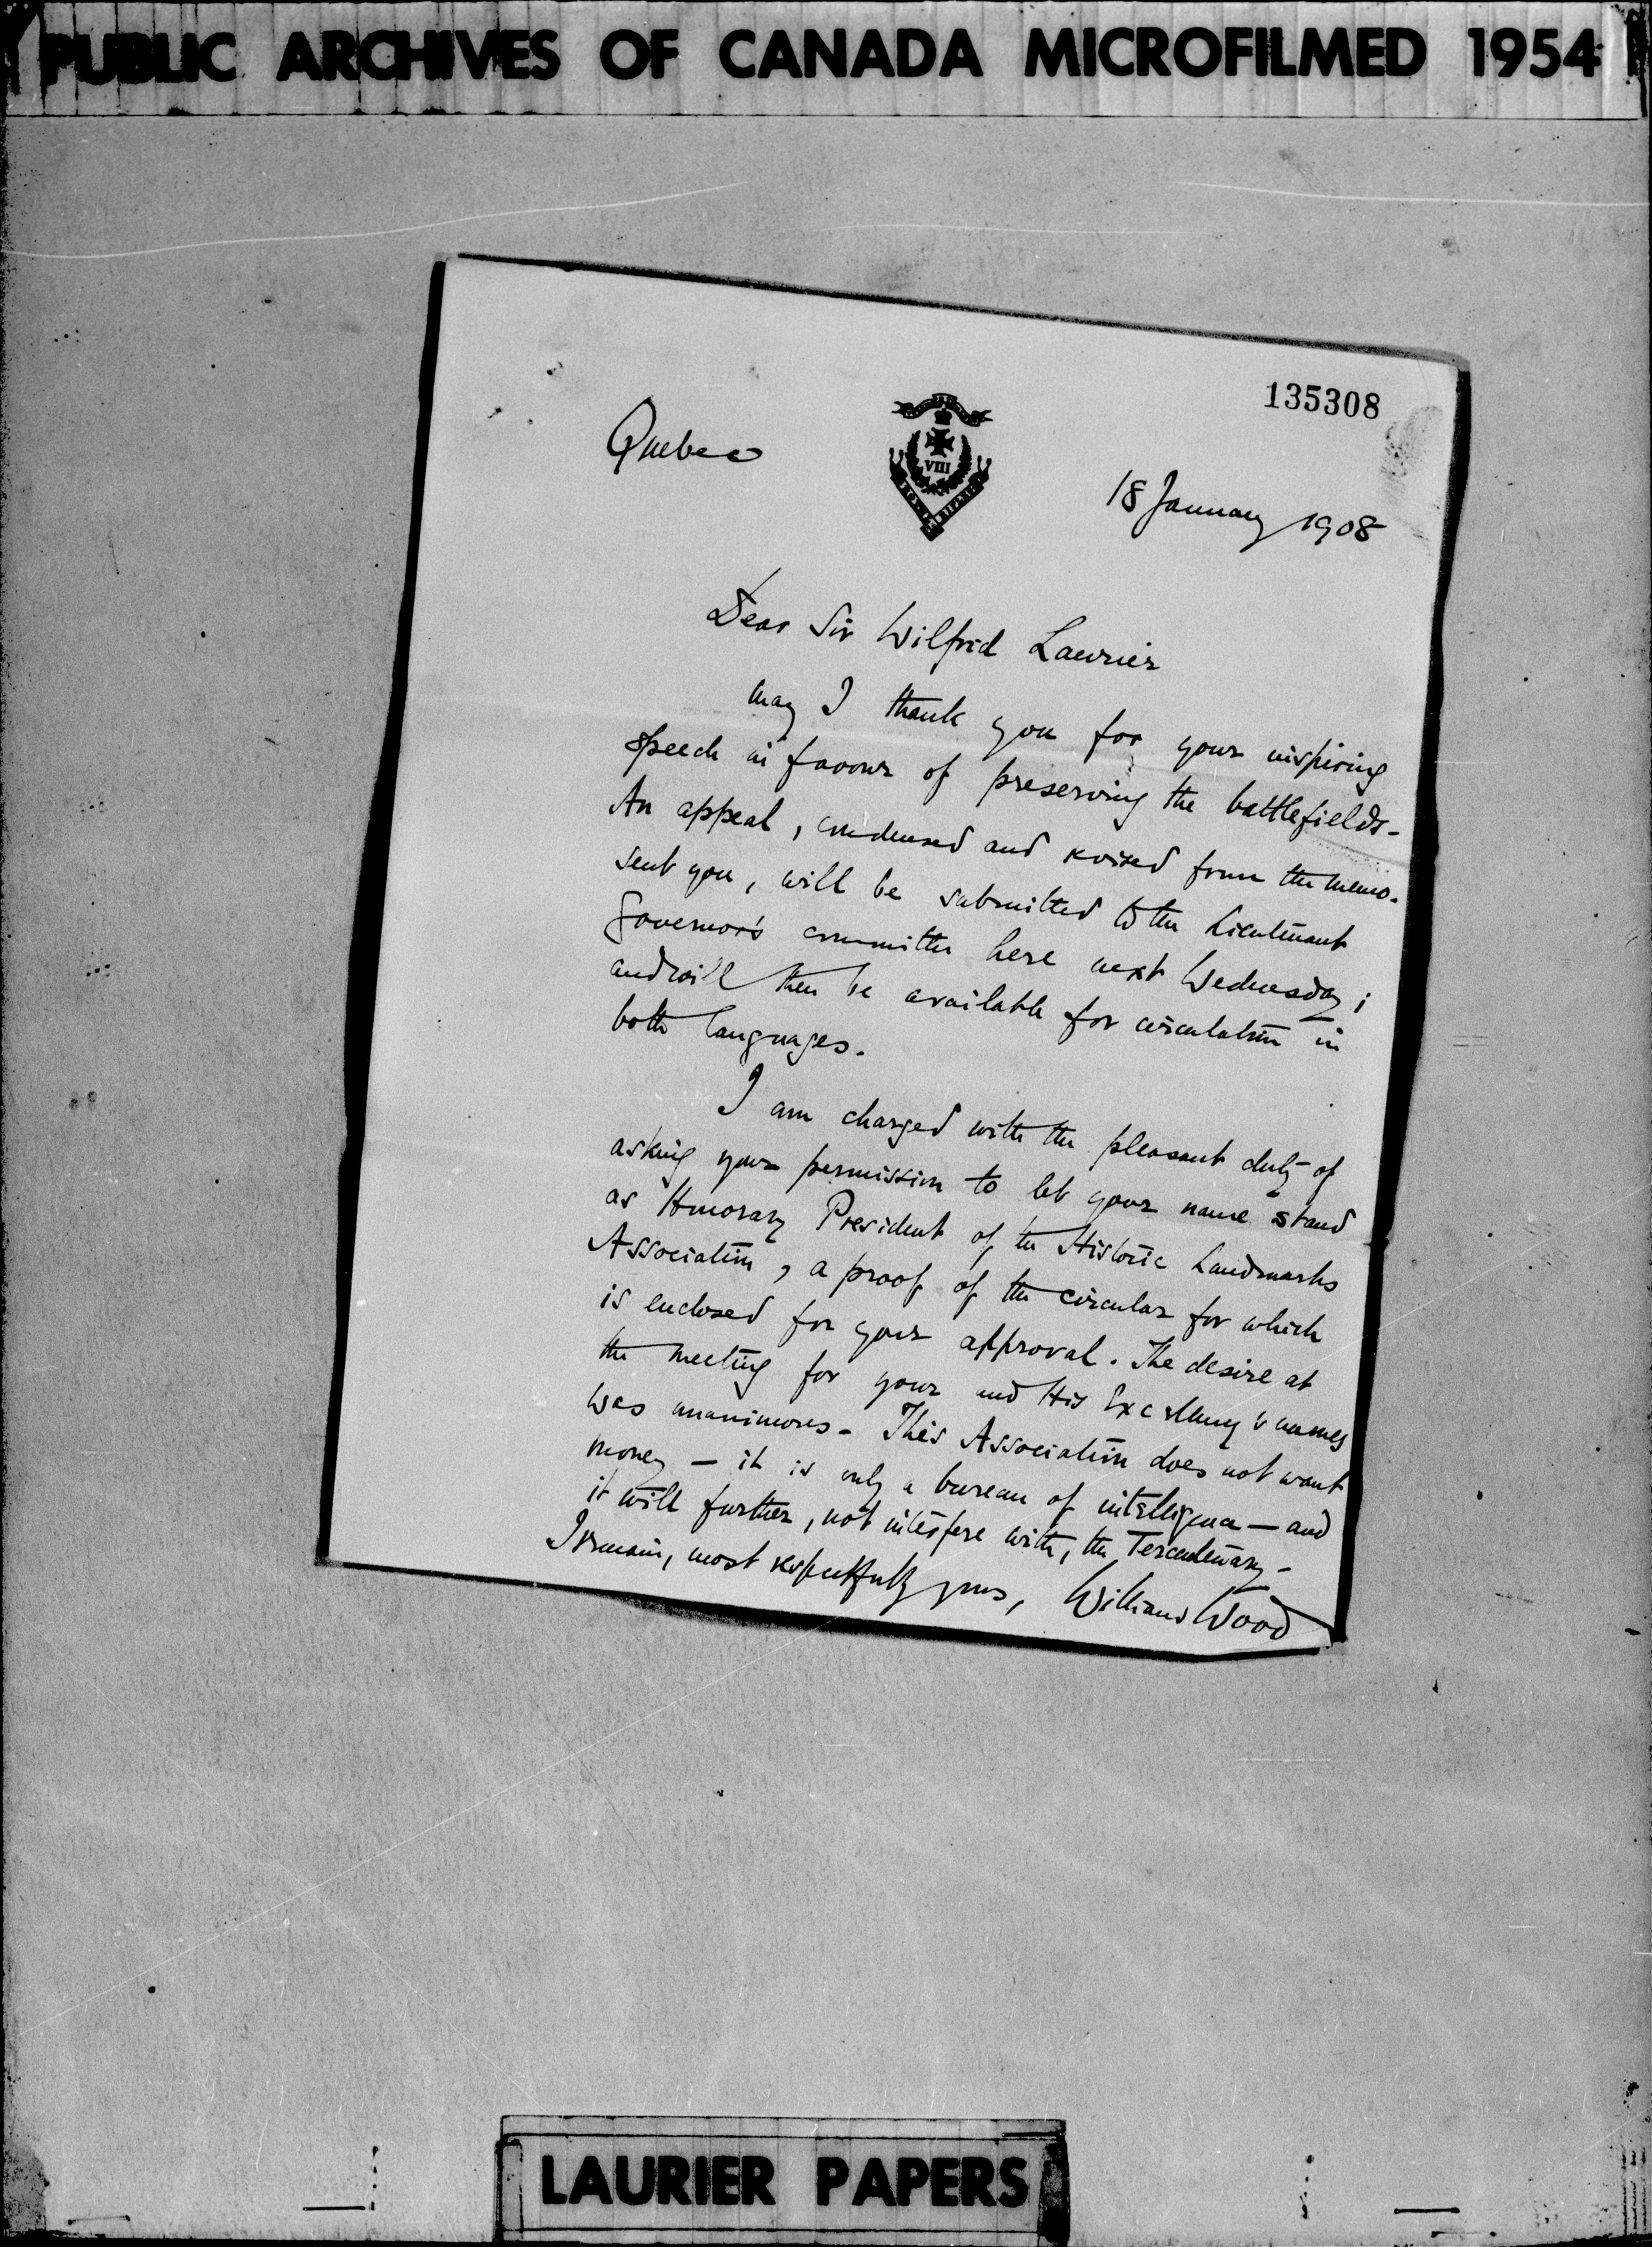 PUBLIC ARCHIVES OF CANADA MICROFILMED 1954
135308
Quebec
VIII
ROYAL RIFLES
18 January 1908
Dear Sir Wilfrid Laurier
may I thank you for your inspiring
speech in favour of preserving the battlefields-
An appeal, condensed and revised from the memo.
sent you, will be submitted to the Lieutenant
Governor's committee here next Wednesday;
and will then be available for circulation in
both languages.
I am charged with the pleasant duty of
asking your permission to let your name stand
as Honorary President of the Historic Landmarks
Association, a proof of the circular for which
is enclosed for your approval. The desire at
the meeting for your and His Excellency's names
was unanimous- This Association does not want
money – it is only a bureau of intelligence – and
it will further, not interfere with, the Tercentenary-
I remain, most respectfully yours, William Wood
LAURIER PAPERS